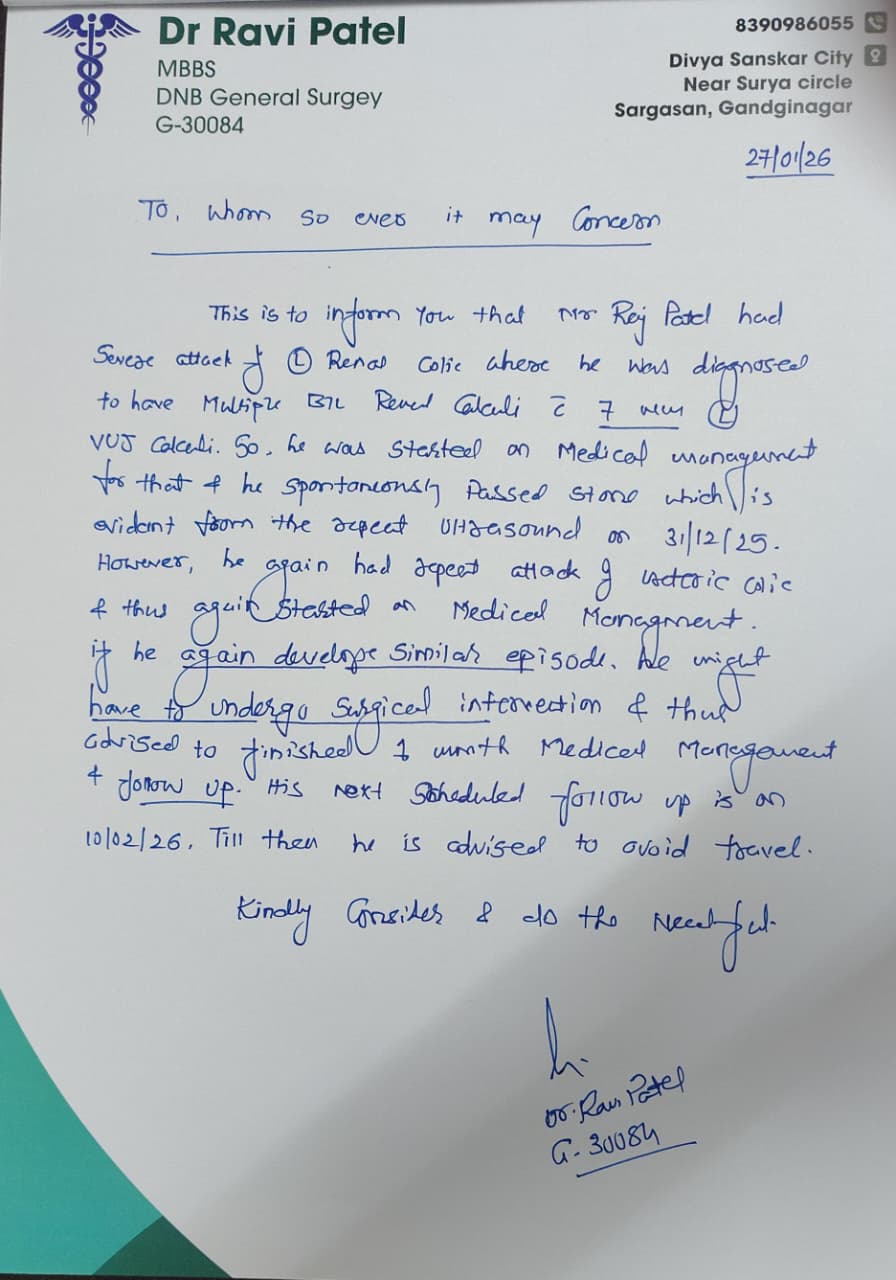 Dr Ravi Patel
MBBS
DNB General Surgey
G-30084
8390986055
Divya Sanskar City
Near Surya circle
Sargasan, Gandginagar
27/01/26
To, Whom so ever it may Concern
This is to inform you that Mr Raj Patel had
Severe attack of Ⓛ Renal Colic where he was diagnosed
to have Multiple B/L Renal Calculi c̄ 7 mm Ⓛ
VUJ Calculi. So, he was started on Medical management
for that & he spontaneously Passed stone which is
evident from the repeat Ultrasound on 31/12/25.
However, he again had repeat attack of ureteric colic
& thus again started on Medical Managment.
if he again develope similar episode. he might
have to undergo Surgical intervection & thus
advised to finished 1 month Medical Management
& follow up. His next Scheduled follow up is on
10/02/26. Till then he is advised to avoid travel.
Kindly Consider & do the Needful.
Dr. Ravi Patel
G-30084